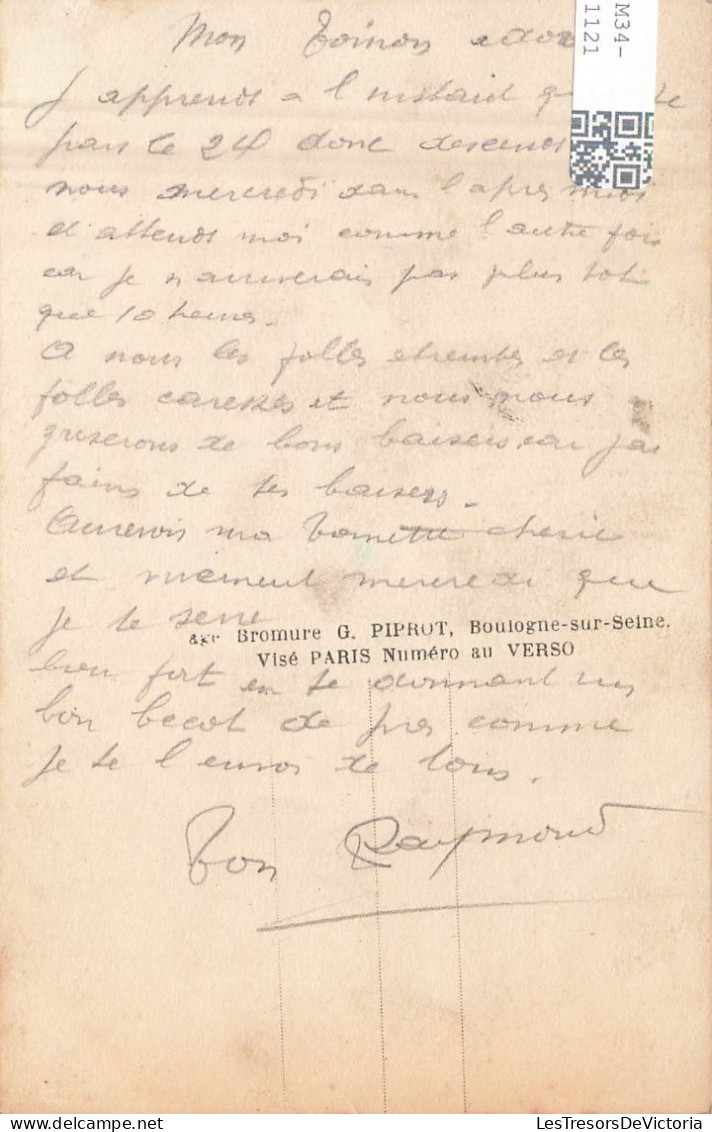 Mon Toinon
M34-
1121
J apprends a l instant
pars le 24 donc descends
nous mercredi dans l apres midi
et attends moi comme l autre fois
car je n arriverais pas plus tot
que 10 heures.
A nous les folles etreintes et les
folles caresses et nous nous
griserons de bons baisers car j ai
faim de tes baisers.
Aurevoir ma cherie
et vivement mercredi que
je te serre
Bromure G. PIPROT, Boulogne-sur-Seine.
Visé PARIS Numéro au VERSO
bien fort en te donnant un
bon becot de pres comme
je te l envoi de loin.
Ton Raymond
LesTresorsDeVictoria
Delcampe.net